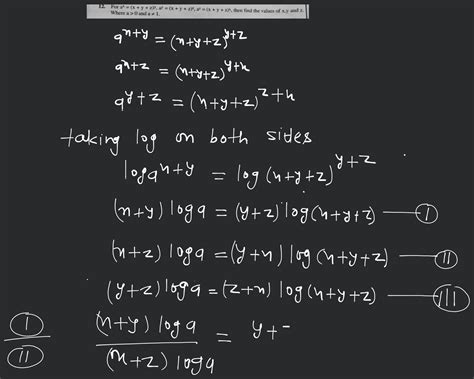 12. For aˣ = (x + y + z)ʸ, aʸ = (x + y + z)ᶻ, aᶻ = (x + y + z)ˣ, then find the values of x,y and z.
Where a > 0 and a ≠ 1.
a^{x+y} = (x+y+z)^{y+z}
a^{x+z} = (x+y+z)^{y+x}
a^{y+z} = (x+y+z)^{z+x}
taking log on both sides
log a^{x+y} = log (x+y+z)^{y+z}
(x+y) log a = (y+z) log(x+y+z) — I
(x+z) log a = (y+x) log (x+y+z) — II
(y+z) log a = (z+x) log (x+y+z) — III
I/II (x+y) log a / (x+z) log a = y+